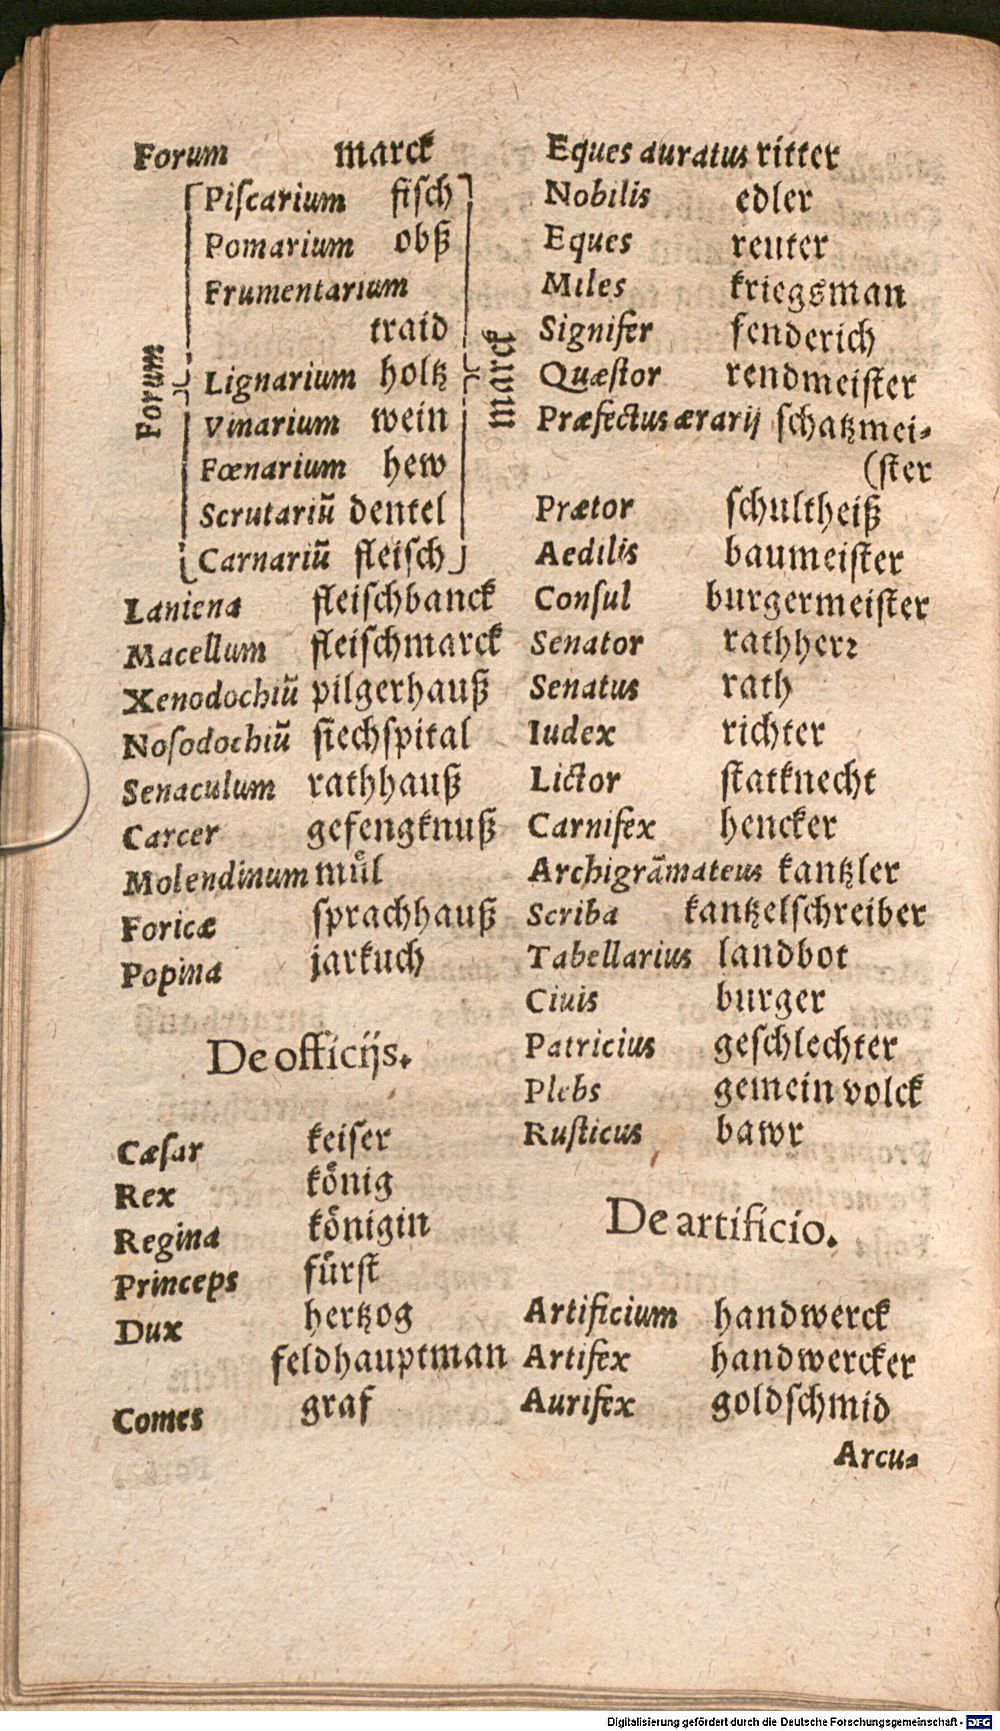 Forum marck
Piſcarium fiſch
Pomarium obß
Frumentarium
traid
Forum
Lignarium holtz
marck
Vinarium wein
Fœnarium hew
Scrutariū dentel
Carnariū fleiſch
Laniena fleiſchbanck
Macellum fleiſchmarck
Xenodochiū pilgerhauß
Noſodochiū ſiechſpital
Senaculum rathhauß
Carcer gefengknuß
Molendinum muͤl
Foricæ ſprachhauß
Popina jarkuch
De officijs.
Cæſar keiſer
Rex koͤnig
Regina koͤnigin
Princeps fuͤrſt
Dux hertzog
feldhauptman
Comes graf
Eques auratus ritter
Nobilis edler
Eques reuter
Miles kriegsman
Signifer fenderich
Quæſtor rendmeiſter
Præfectus ærarij ſchatzmei-
(ſter
Prætor ſchultheiß
Aedilis baumeiſter
Conſul burgermeiſter
Senator rathherꝛ
Senatus rath
Iudex richter
Lictor ſtatknecht
Carnifex hencker
Archigrāmateus kantzler
Scriba kantzelſchreiber
Tabellarius landbot
Ciuis burger
Patricius geſchlechter
Plebs gemein volck
Ruſticus bawr
De artificio.
Artificium handwerck
Artifex handwercker
Aurifex goldſchmid
Arcu-
Digitalisierung gefördert durch die Deutsche Forschungsgemeinschaft - DFG